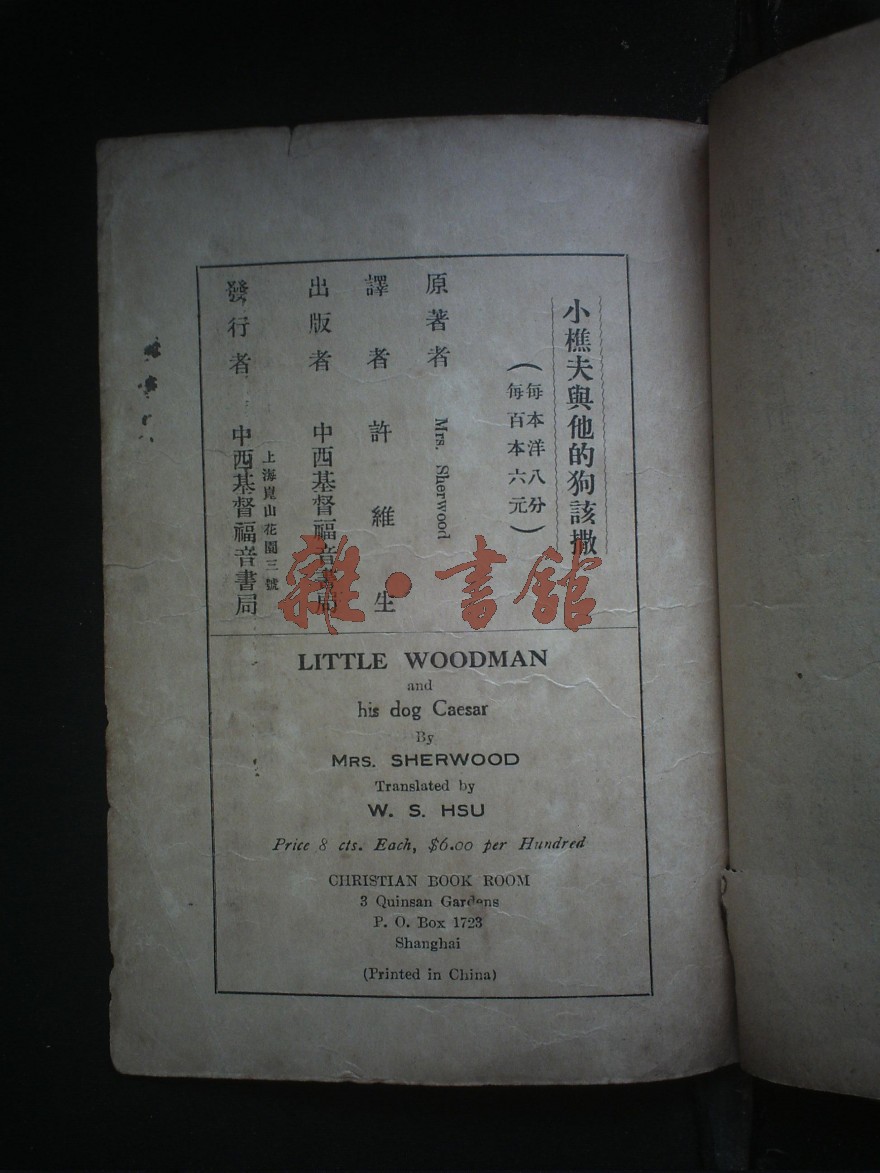 小樵夫與他的狗該撒
（每本洋八分
每百本六元）
原著者 Mrs. Sherwood
譯者 許維生
出版者 中西基督福音書局
上海崑山花園三號
發行者 中西基督福音書局
LITTLE WOODMAN
and
his dog Caesar
By
MRS. SHERWOOD
Translated by
W. S. HSU
Price 8 cts. Each, $6.00 per Hundred
CHRISTIAN BOOK ROOM
3 Quinsan Gardens
P. O. Box 1723
Shanghai
(Printed in China)
雜·書館